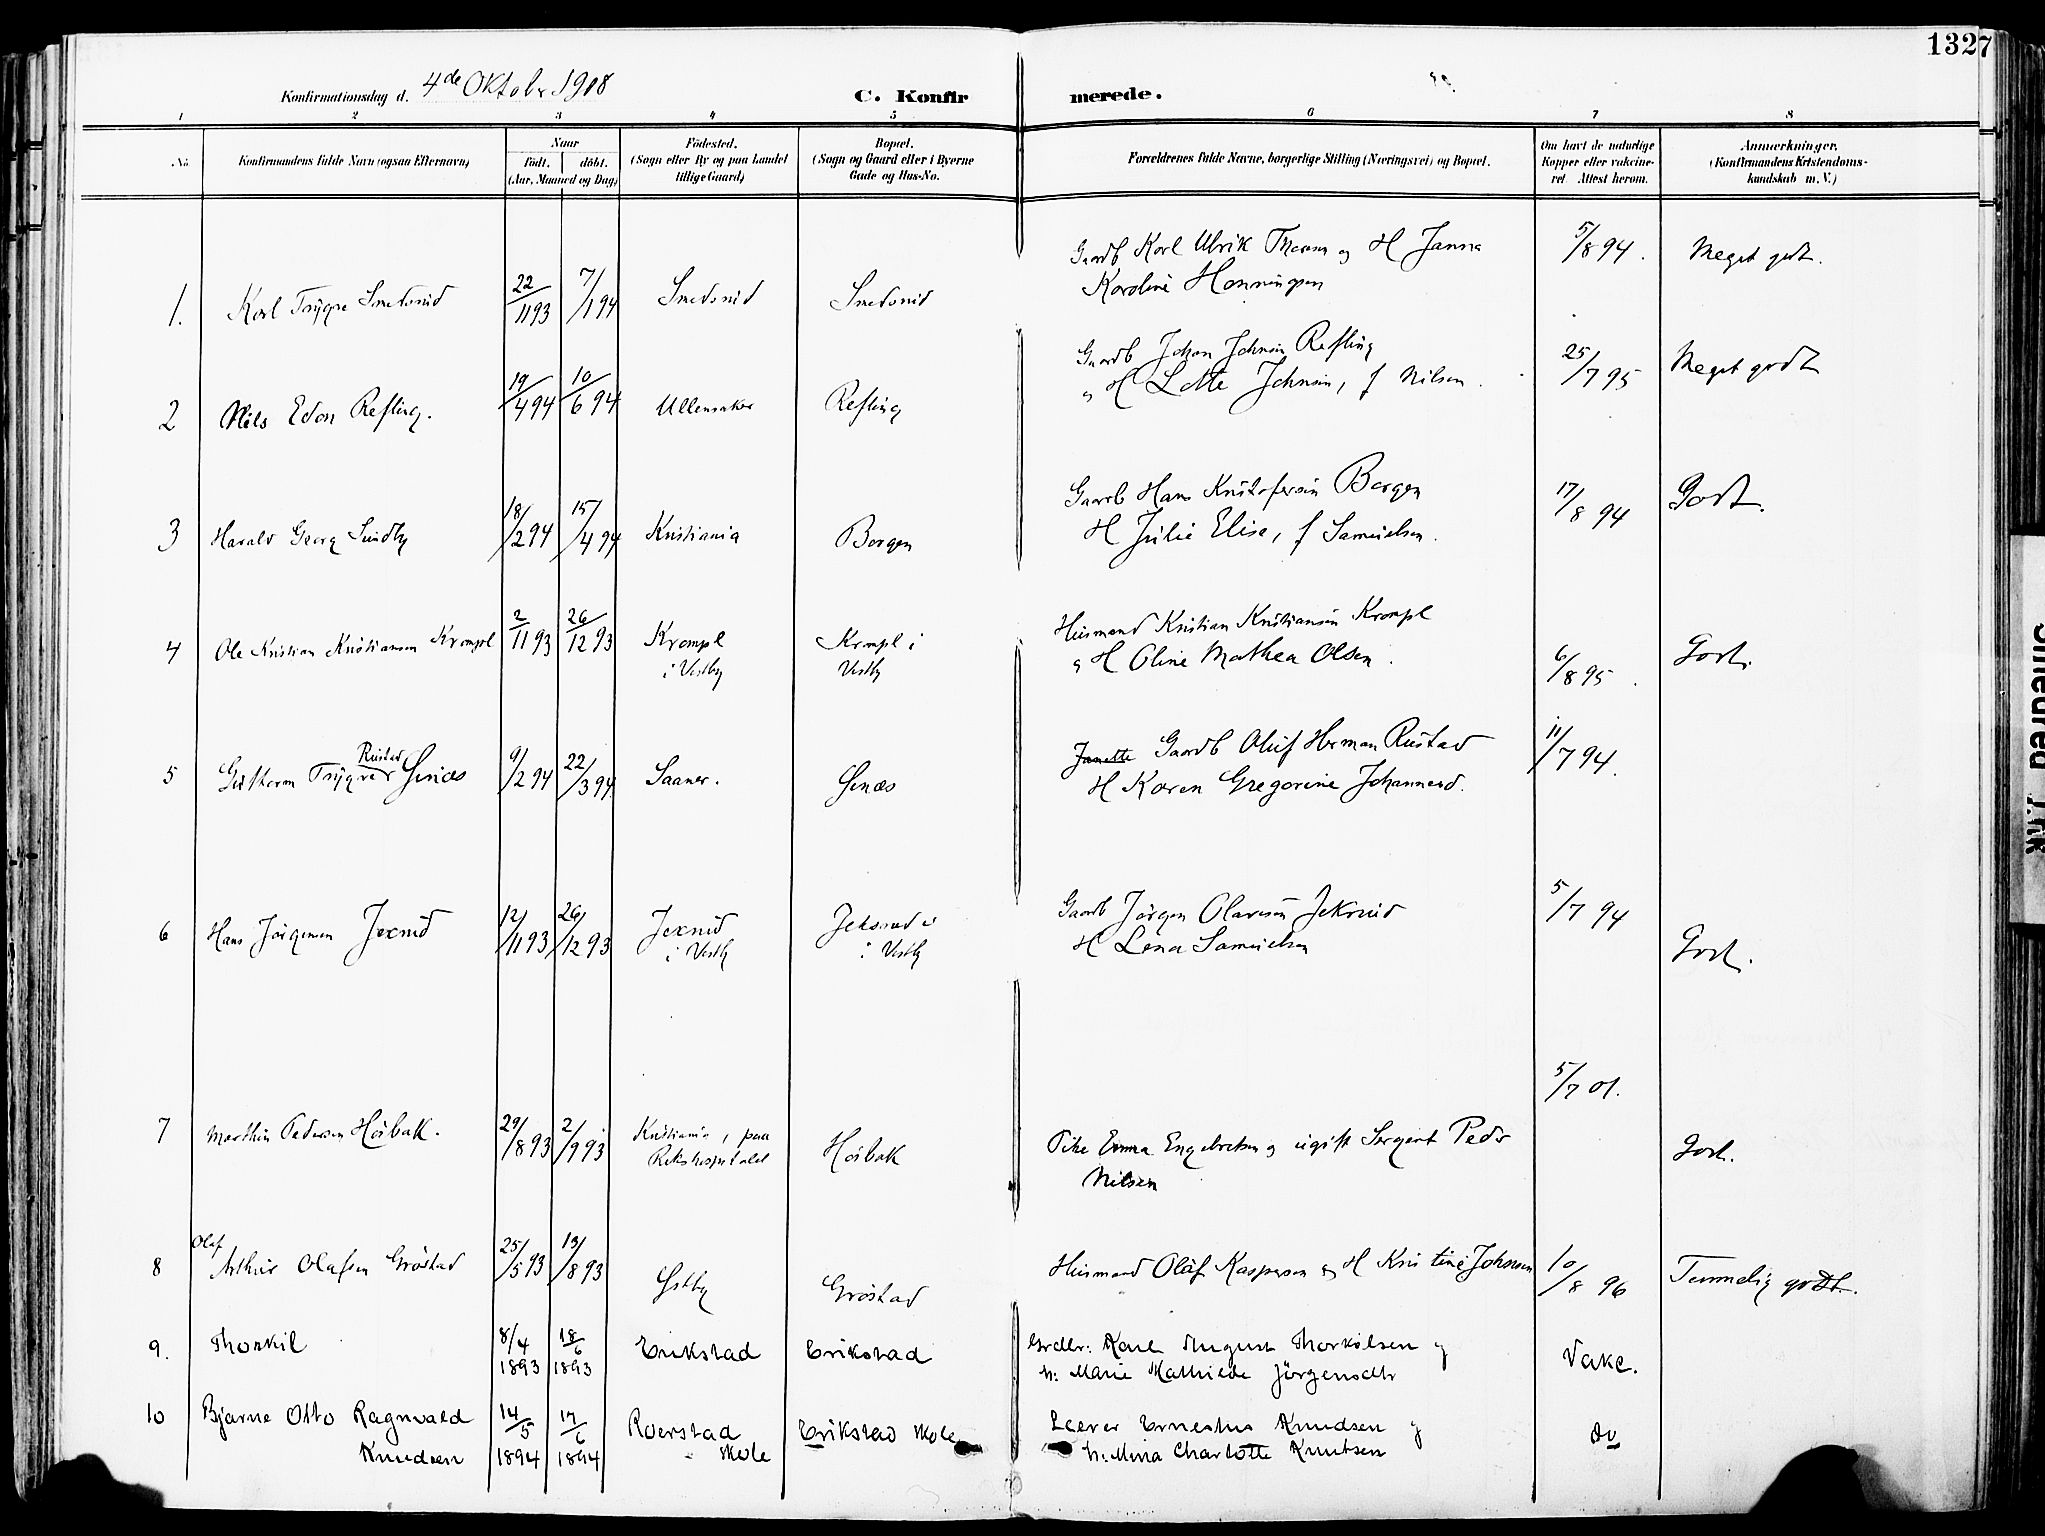 1327
Konfirmationsdag d. 4de Oktober 1908
C. Konfirmerede.
1 2 3 4 5 6 7 8
No. Konfirmandens fulde Navn (ogsaa Efternavn)
Naar födt. döbt. (Aar, Maaned og Dag)
Födested. (Sogn eller By og paa Landet tillige Gaard)
Bopæl. (Sogn og Gaard eller i Byerne Gade og Hus-No.
Forældrenes fulde Navne, borgerlige Stilling (Næringsvei) og Bopæl.
Om havt de naturlige Kopper eller vaccineret Attest herom.
Anmærkninger. (Konfirmandens Kristendomskundskab m. V.)
1. Karl Trygve Smedsrud 22/11 93 7/1 94 Smedsrud Smedsrud
Gaardb Karl Ulrik og H Janna
Karoline Henningsen
5/8 94. Meget godt.
2 Nils Edon Refling. 19/4 94 10/6 94 Ullensaker Refling
Gaardb Johan Johnsen Refling
og H Lotte Johnsen, f Nilsen.
25/7 95 Meget godt
3 Harald Georg Sundby 18/2 94 15/4 94 Kristiania Borgen
Gaardb Hans Kristofersen Borgen
H Julie Elise, f Samuelsen.
17/8 94 Godt.
4 Ole Kristian Kristiansen Krompl 2/11 93 26/12 93 Krompl i Vestby Krompl i Vestby
Husmand Kristian Kristiansen Krompl
og H Oline Mathea Olsen.
6/8 95. Godt.
5 Guthorm Trygve Rustad Genæs 9/2 94 22/3 94 Saaner. Genæs
Janette Gaardb Oluf Herman Rustad
H Karen Gregorine Johannesd.
11/7 94.
6 Hans Jörgensen Jexrud 12/11 93 26/12 93 Jexrud i Vestby Jeksrud i Vestby
Gaardb Jörgen Olavesen Jeksrud
H Lena Samuelsen
5/7 94 Godt.
5/7 01.
7 Marthin Pedersen Höibak. 29/8 93 2/9 93 Kristiania, paa Rikshospitalet Höibak
Pike Emma Engebretsen og ugift Sergent Peder
Nilsen
Godt.
8 Olaf
Arthur Olafsen Gröstad 25/5 93 13/8 93 Estby Gröstad
Husmand Olaf Kaspersen og H Kristine Johnsen
10/8 96 Temmelig godt.
9. Thorkil 8/4 1893 18/6 1893 Erikstad Erikstad
Grdbr: Karl August Thorkilsen og
h: Marie Mathilde Jörgensdtr
Vakc.
10 Bjarne Otto Ragnvald
Knudsen 14/5 1894 17/6 1894 Roerstad Skole Erikstad Skole
Lærer Ernestus Knudsen og
h: Mina Charlotte Knutsen
do